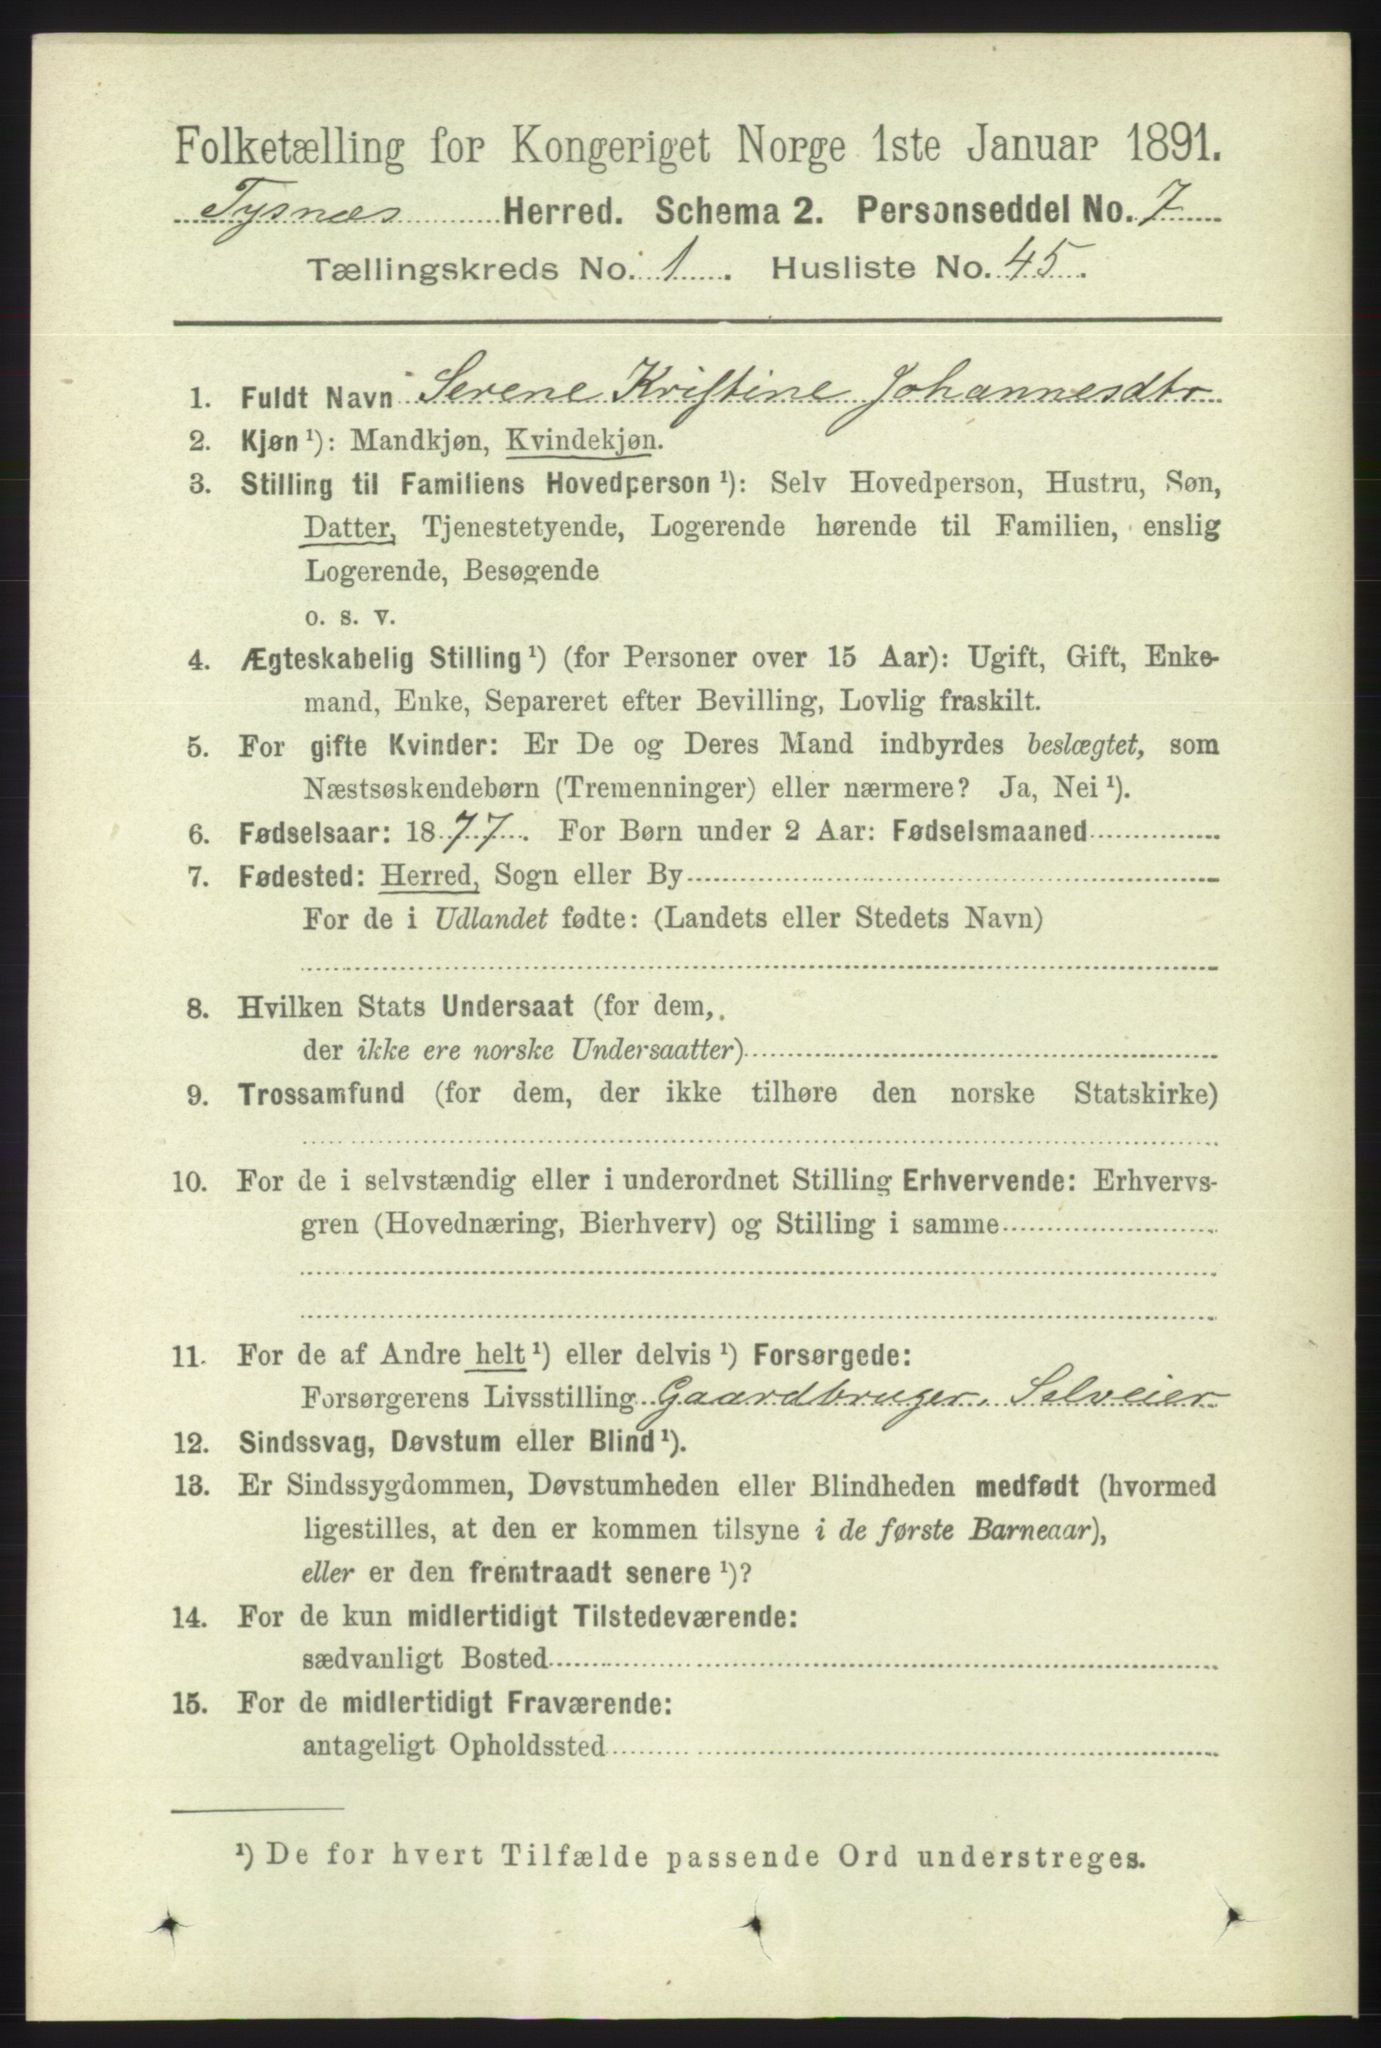 Folketælling for Kongeriget Norge 1ste Januar 1891.
Tysnæs Herred. Schema 2. Personseddel No. 7
Tællingskreds No. 1. Husliste No. 45.
1. Fuldt Navn Serene Kristine Johannesdtr
2. Kjøn ¹): Mandkjøn, Kvindekjøn.
3. Stilling til Familiens Hovedperson ¹): Selv Hovedperson, Hustru, Søn,
Datter, Tjenestetyende, Logerende hørende til Familien, enslig
Logerende, Besøgende
o. s. v.
4. Ægteskabelig Stilling ¹) (for Personer over 15 Aar): Ugift, Gift, Enke-
mand, Enke, Separeret efter Bevilling, Lovlig fraskilt.
5. For gifte Kvinder: Er De og Deres Mand indbyrdes beslægtet, som
Næstsøskendebørn (Tremenninger) eller nærmere? Ja, Nei ¹).
6. Fødselsaar: 1877. For Børn under 2 Aar: Fødselsmaaned
7. Fødested: Herred, Sogn eller By
For de i Udlandet fødte: (Landets eller Stedets Navn)
8. Hvilken Stats Undersaat (for dem,
der ikke ere norske Undersaatter)
9. Trossamfund (for dem, der ikke tilhøre den norske Statskirke)
10. For de i selvstændig eller i underordnet Stilling Erhvervende: Erhvervs-
gren (Hovednæring, Bierhverv) og Stilling i samme
11. For de af Andre helt ¹) eller delvis ¹) Forsørgede:
Forsørgerens Livsstilling Gaardbruger, Selveier
12. Sindssvag, Døvstum eller Blind ¹).
13. Er Sindssygdommen, Døvstumheden eller Blindheden medfødt (hvormed
ligestilles, at den er kommen tilsyne i de første Barneaar),
eller er den fremtraadt senere ¹)?
14. For de kun midlertidigt Tilstedeværende:
sædvanligt Bosted
15. For de midlertidigt Fraværende:
antageligt Opholdssted
¹) De for hvert Tilfælde passende Ord understreges.